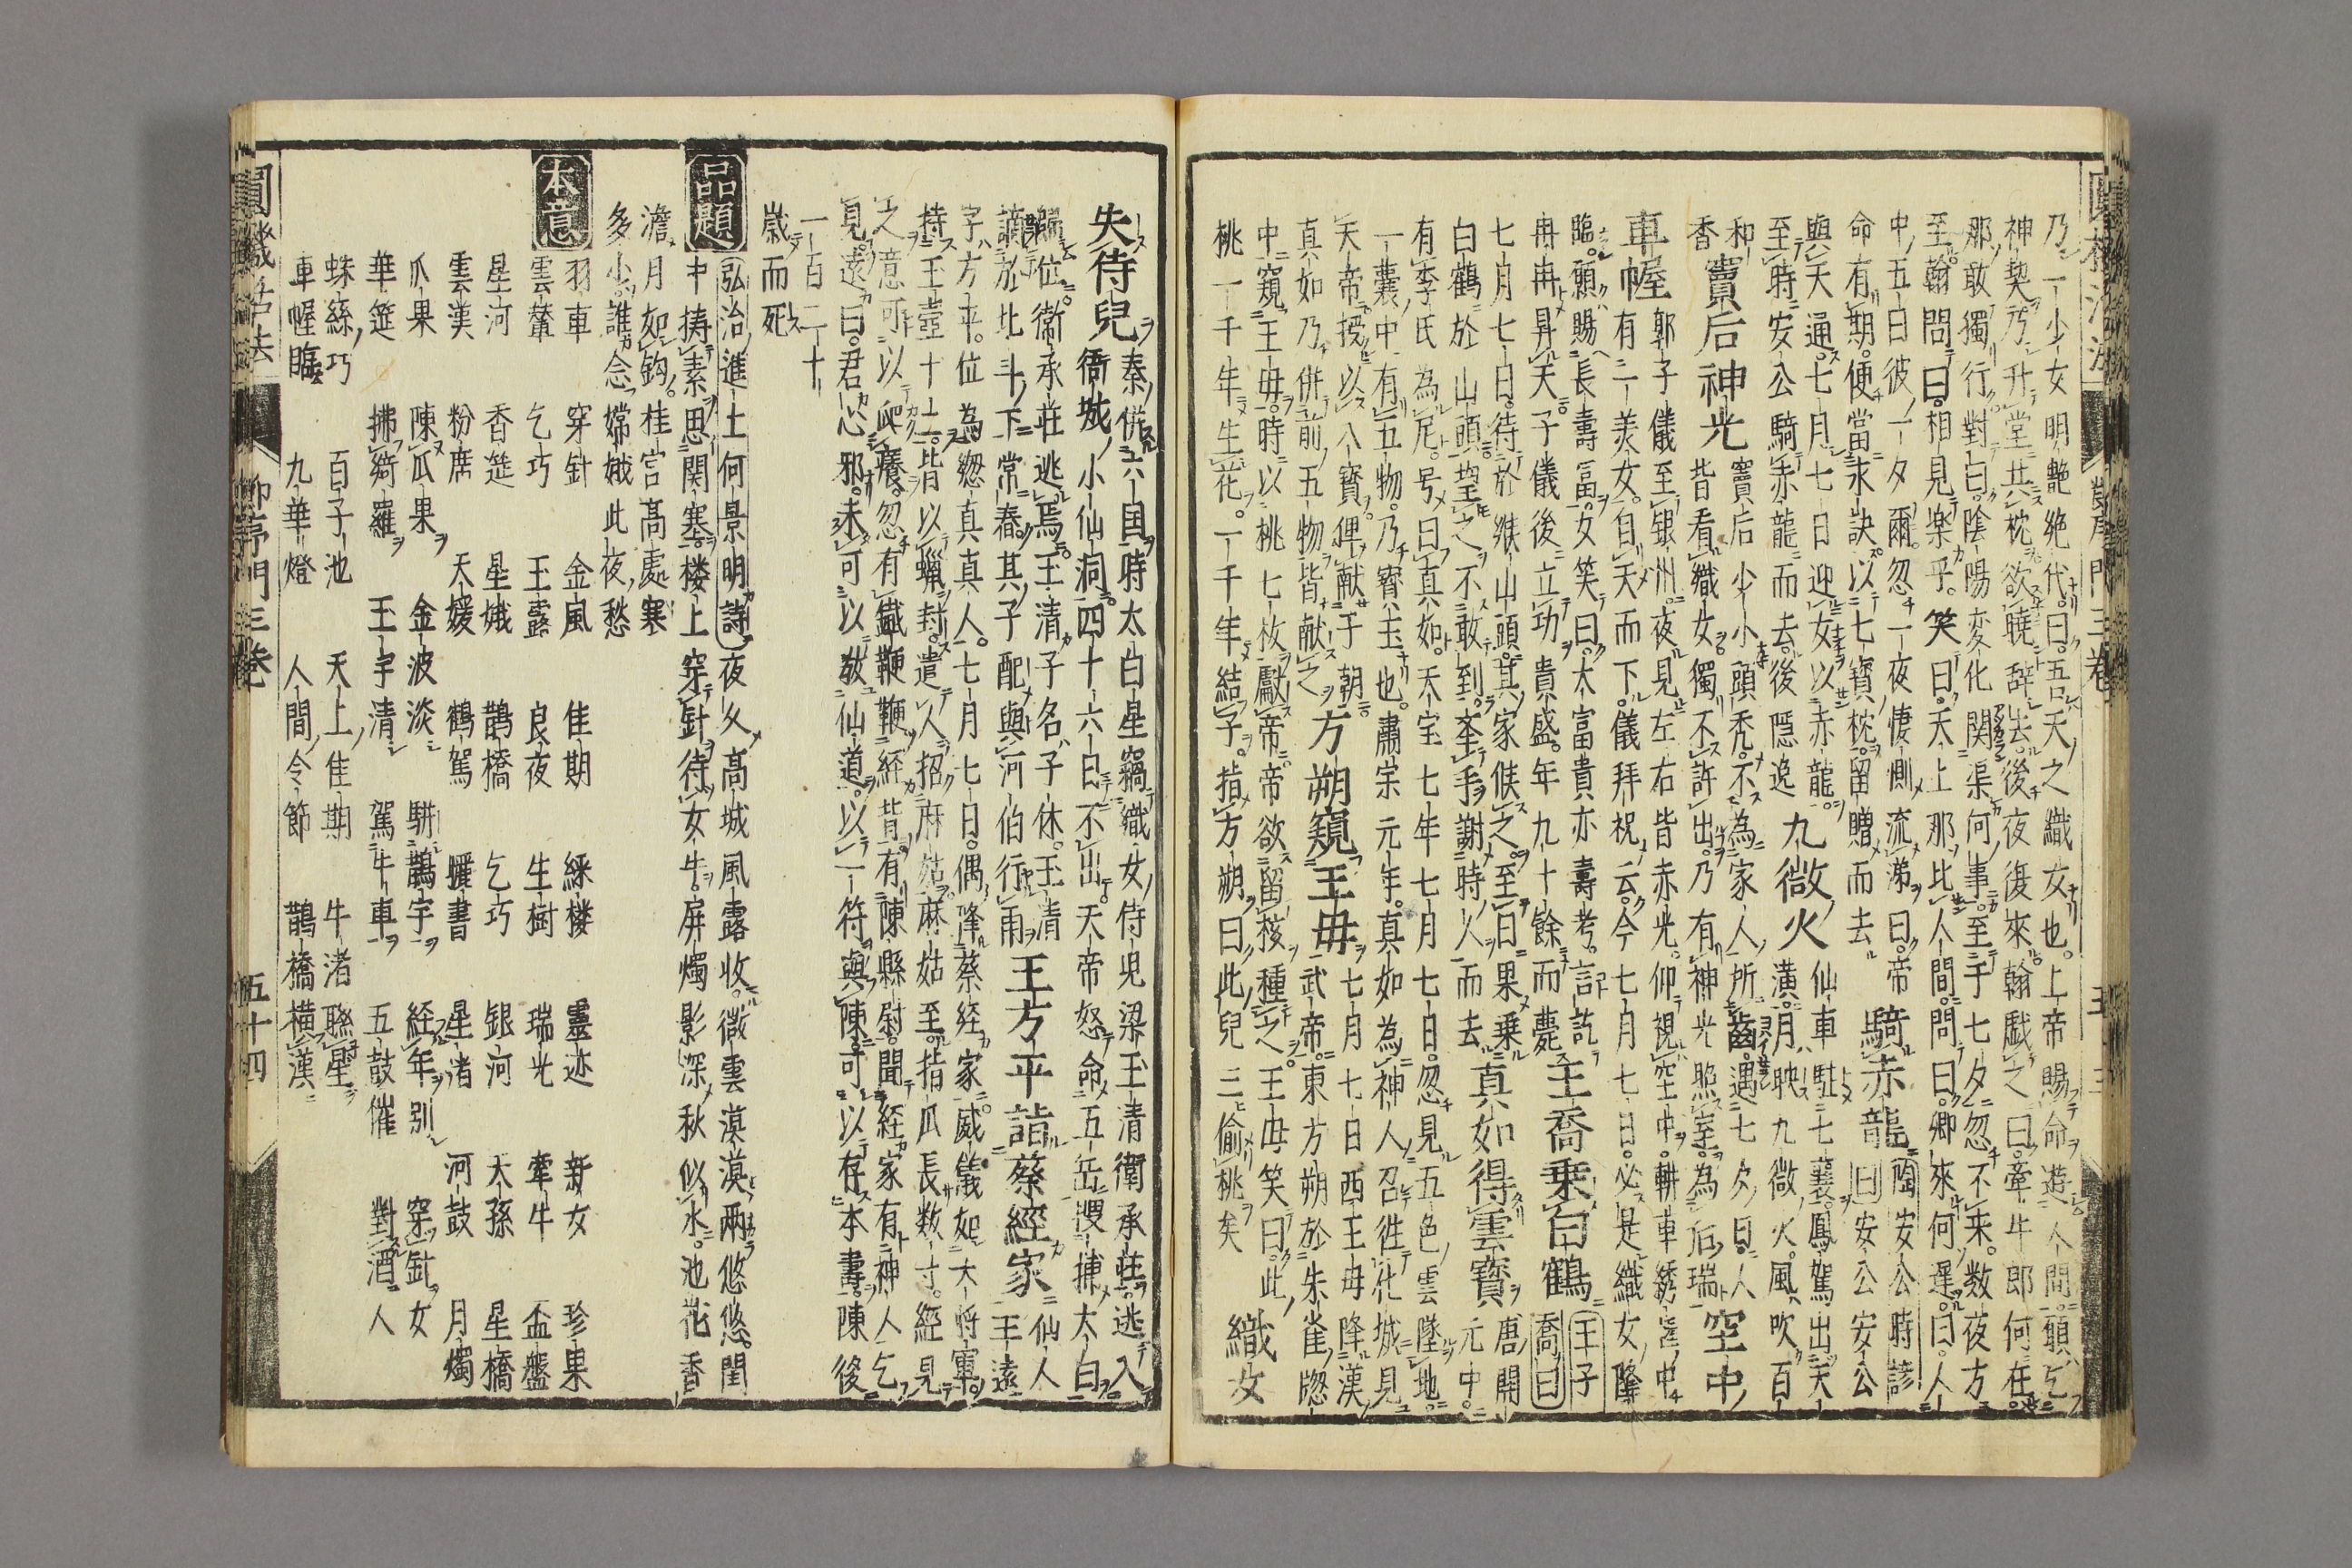 乃一少女明艶絶代曰吾天之織女也上帝賜命遊人間願乞
神契乃升堂共枕欲曉辞去後夜復來翰戯之曰牽牛郎何在
那敢獨行對曰陰陽変化関渠何事至于七夕忽不来数夜方
至翰問曰相見楽乎笑曰天上那比人間問曰卿來何遲曰人
中五日彼一夕爾忽一夜悽惻流涕曰帝
命有期便當永訣以七寶枕留贈而去
騎赤龍
陶安公時諺曰安公安公
與天通七月七日迎女以赤龍
至時安公騎赤龍而去後隠逸
九微火
仙車駐七襄鳳駕出天
潢月映九微火風吹百
和香
竇后神光
竇后少小頭禿不為家人所齒遇七夕日人
皆看織女獨不許出乃有神光照室為后瑞
空中
車幄
郭子儀至銀州夜見左右皆赤光仰視空中軿車綉幄中
有一美女自天而下儀拜祝云今七月七日必是織女降
臨願賜長壽冨女笑曰大富貴亦壽考言訖
冉冉昇天子儀後立功貴盛年九十餘而薨
王喬乗白鶴
王子喬曰
七月七日待於緱山頭其家候之至日果乗
白鶴於山頭望之不敢到挙手謝時人而去
真如得雲寶
唐開元中
有李氏為尼号曰真如天宝七年七月七日忽見五色雲墜地
一囊中有五物乃寳玉也肅宗元年真如為神人召徃化城見
天帝授以八寳俾献于朝
真如乃併前五物皆献之
方朔窺王毋
七月七日西王母降漢
武帝東方朔於朱雀牕
中窺王毋時以桃七枚獻帝帝欲留核種之王母笑曰此
桃一千年生花一千年結子指方朔曰此兒三偷桃矣
織女
失侍兒
秦併六国時太白星竊織女侍児梁玉清衛承荘逃入
衙城小仙洞四十六日不出天帝怒命五岳捜捕太白
歸位衛承荘逃焉玉清子名子休玉清
謫於北斗下常舂其子配與河伯行雨
王方平詣蔡經家
仙人王遠
字方平位為緫真真人七月七日偶降蔡経家威儀如大将軍
持玉壺十二皆以蝋封遣人招麻姑麻姑至指爪長数寸經見
之意可以爬癢忽有鐵鞭鞭経背有陳縣尉聞経家有神人乞
見遠曰君心邪未可以教仙道以一符與陳可以存本壽陳後
一百二十
歳而死
品題
弘治進士何景明詩夜久高城風露收微雲漠漠兩悠悠閨
中擣素思関塞楼上穿針待女牛屏燭影深秋似水池花香
澹月如鈎桂宮高處寒
多少誰念嫦娥此夜愁
本意
羽車　穿針　金風　佳期　綵楼　靈迹　新女　珍果
雲輦　乞巧　玉露　良夜　生樹　瑞光　牽牛　盃盤
星河　香筵　星娥　鵲橋　乞巧　銀河　天孫　星橋
雲漢　粉席　天媛　鶴駕　曬書　星渚　河鼓　月燭
爪果　陳瓜果　金波淡　駢鵲宇　経年別　穿針女
華筵　拂綺羅　玉宇清　駕牛車　五鼓催　對酒人
蛛絲巧　百子池　天上佳期　牛渚聯星
車幄臨　九華燈　人間令節　鵲橋横漢
柳亭門三巻
五十四